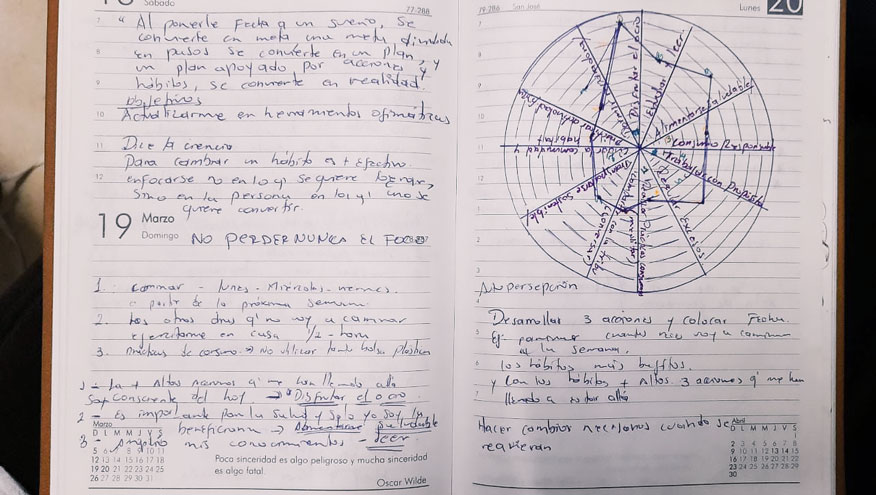 Sábado
77-288
" Al ponerle Fecha a un sueño, se
convierte en meta una meta dividida
en pasos se convierte en un plan, y
un plan apoyado por acciones y
hábitos, se convierte en realidad.
objetivos
Actualizarme en herramientas ofimáticas
Dice la ciencia
Para cambiar un hábito es + efectivo.
enfocarse no en lo q' se quiere
sino en la persona en lo q' uno se
quiere convertir.
7
8
9
10
11
12
19 Marzo
Domingo
NO PERDER NUNCA EL FOCO
1. caminar - lunes - Miércoles - viernes.
a partir de la próxima semana.
2. Los otros días q' no voy a caminar
ejercitarme en casa 1/2 hora
3. prácticas de consumo → No utilizar tanta bolsa plástica
1 - La + Altos acciones q' me han llevado allá
Soy consciente del hoy → Disfrutar el ocio
2 - Es importante para la Salud y Solo yo Soy la
beneficiaria → Alimentarme saludable
3 - Amplio mis conocimientos - leer
Marzo
D L M M J V S
5 6 7 8 9 10 11
12 13 14 15 16 17 18
19 20 21 22 23 24 25
26 27 28 29 30 31
Poca sinceridad es algo peligroso y mucha sinceridad
es algo fatal.
Oscar Wilde
79-286
San José
Lunes
20
Disfrutar el ocio
Estudiar / leer
Alimentarse saludable
Consumo Responsable
Trabajar con Propósito
Excesos
Transportarse Sostenible
Cuidar la comunidad y
hábitat
Autopersepción
Desarrollar 3 acciones y colocar Fecha.
Ej: caminar cuantas veces voy a caminar
a la semana.
los hábitos más bajitos.
y con los hábitos + Altos. 3 acciones q' me han
llevado a estar allá
Hacer cambios necesarios cuando se
requieran
Abril
D L M M J V S
2 3 4 5 6 7 8
9 10 11 12 13 14 15
16 17 18 19 20 21 22
23 24 25 26 27 28 29
30